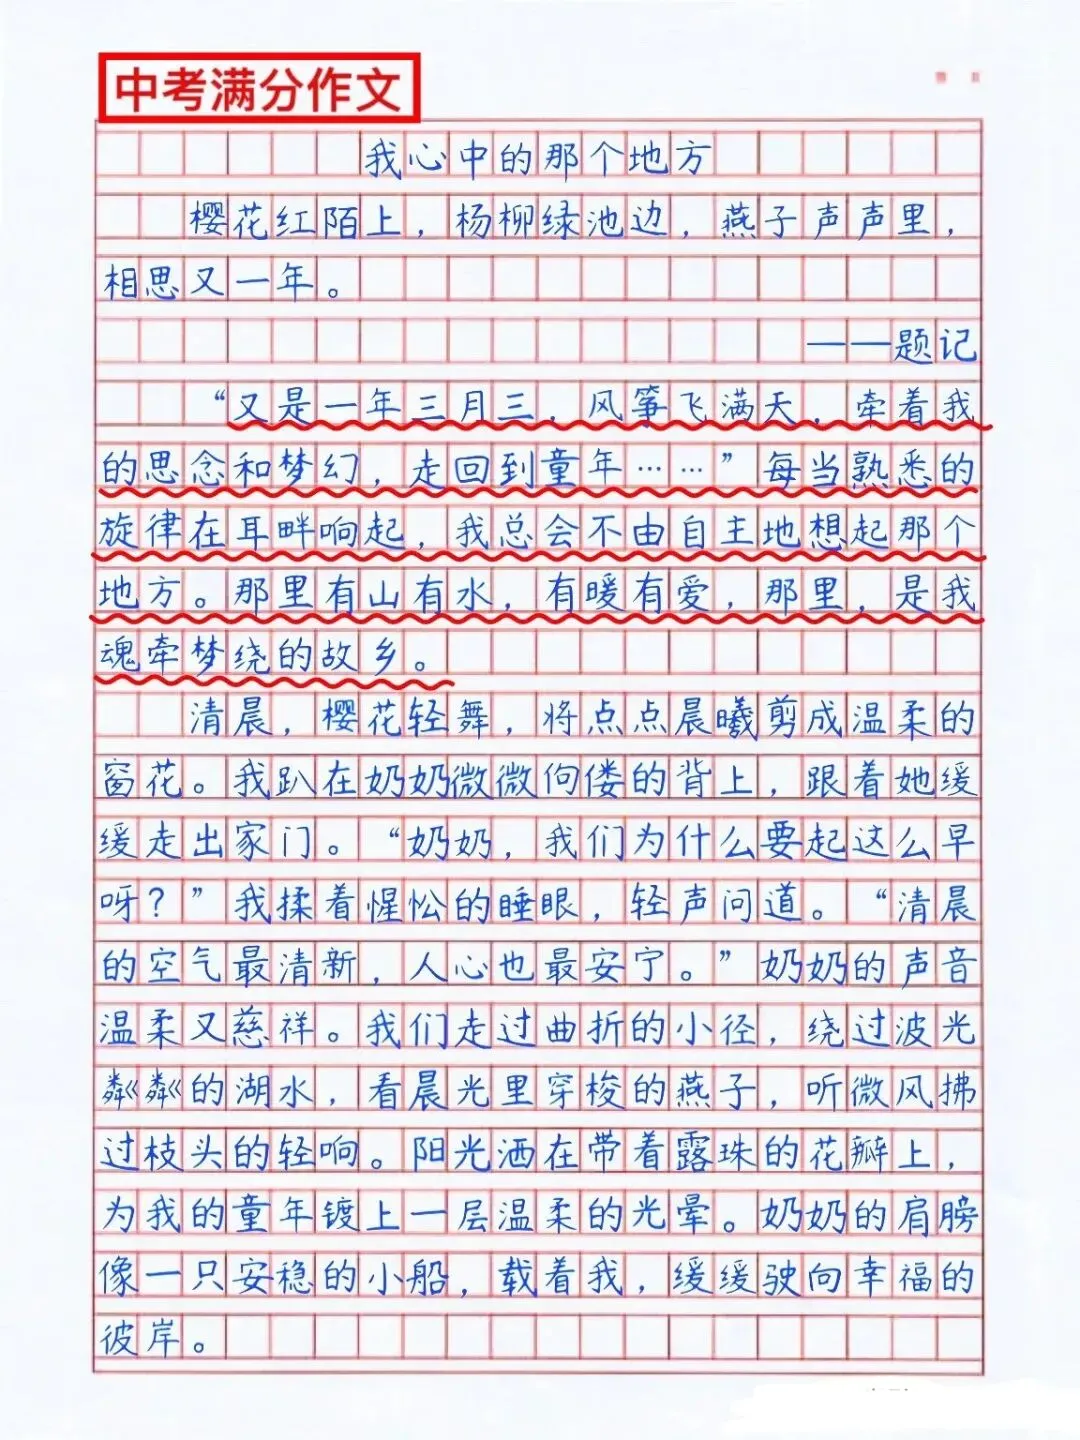 中考满分作文
我心中的那个地方
樱花红陌上，杨柳绿池边，燕子声声里，
相思又一年。
——题记
“又是一年三月三，风筝飞满天，牵着我
的思念和梦幻，走回到童年……”每当熟悉的
旋律在耳畔响起，我总会不由自主地想起那个
地方。那里有山有水，有暖有爱，那里，是我
魂牵梦绕的故乡。
清晨，樱花轻舞，将点点晨曦剪成温柔的
窗花。我趴在奶奶微微佝偻的背上，跟着她缓
缓走出家门。“奶奶，我们为什么要起这么早
呀？”我揉着惺忪的睡眼，轻声问道。“清晨
的空气最清新，人心也最安宁。”奶奶的声音
温柔又慈祥。我们走过曲折的小径，绕过波光
粼粼的湖水，看晨光里穿梭的燕子，听微风拂
过枝头的轻响。阳光洒在带着露珠的花瓣上，
为我的童年镀上一层温柔的光晕。奶奶的肩膀
像一只安稳的小船，载着我，缓缓驶向幸福的
彼岸。